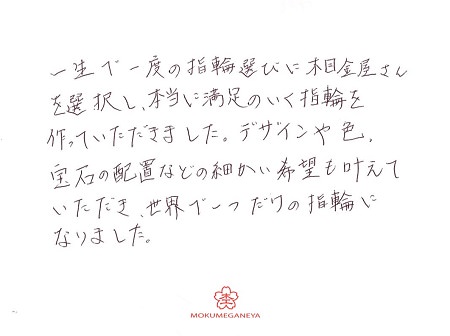 一生で一度の指輪選びに木目金屋さん
を選択し、本当に満足のいく指輪を
作っていただきました。デザインや色、
宝石の配置などの細かい希望も叶えて
いただき、世界で一つだけの指輪に
なりました。
MOKUMEGANEYA